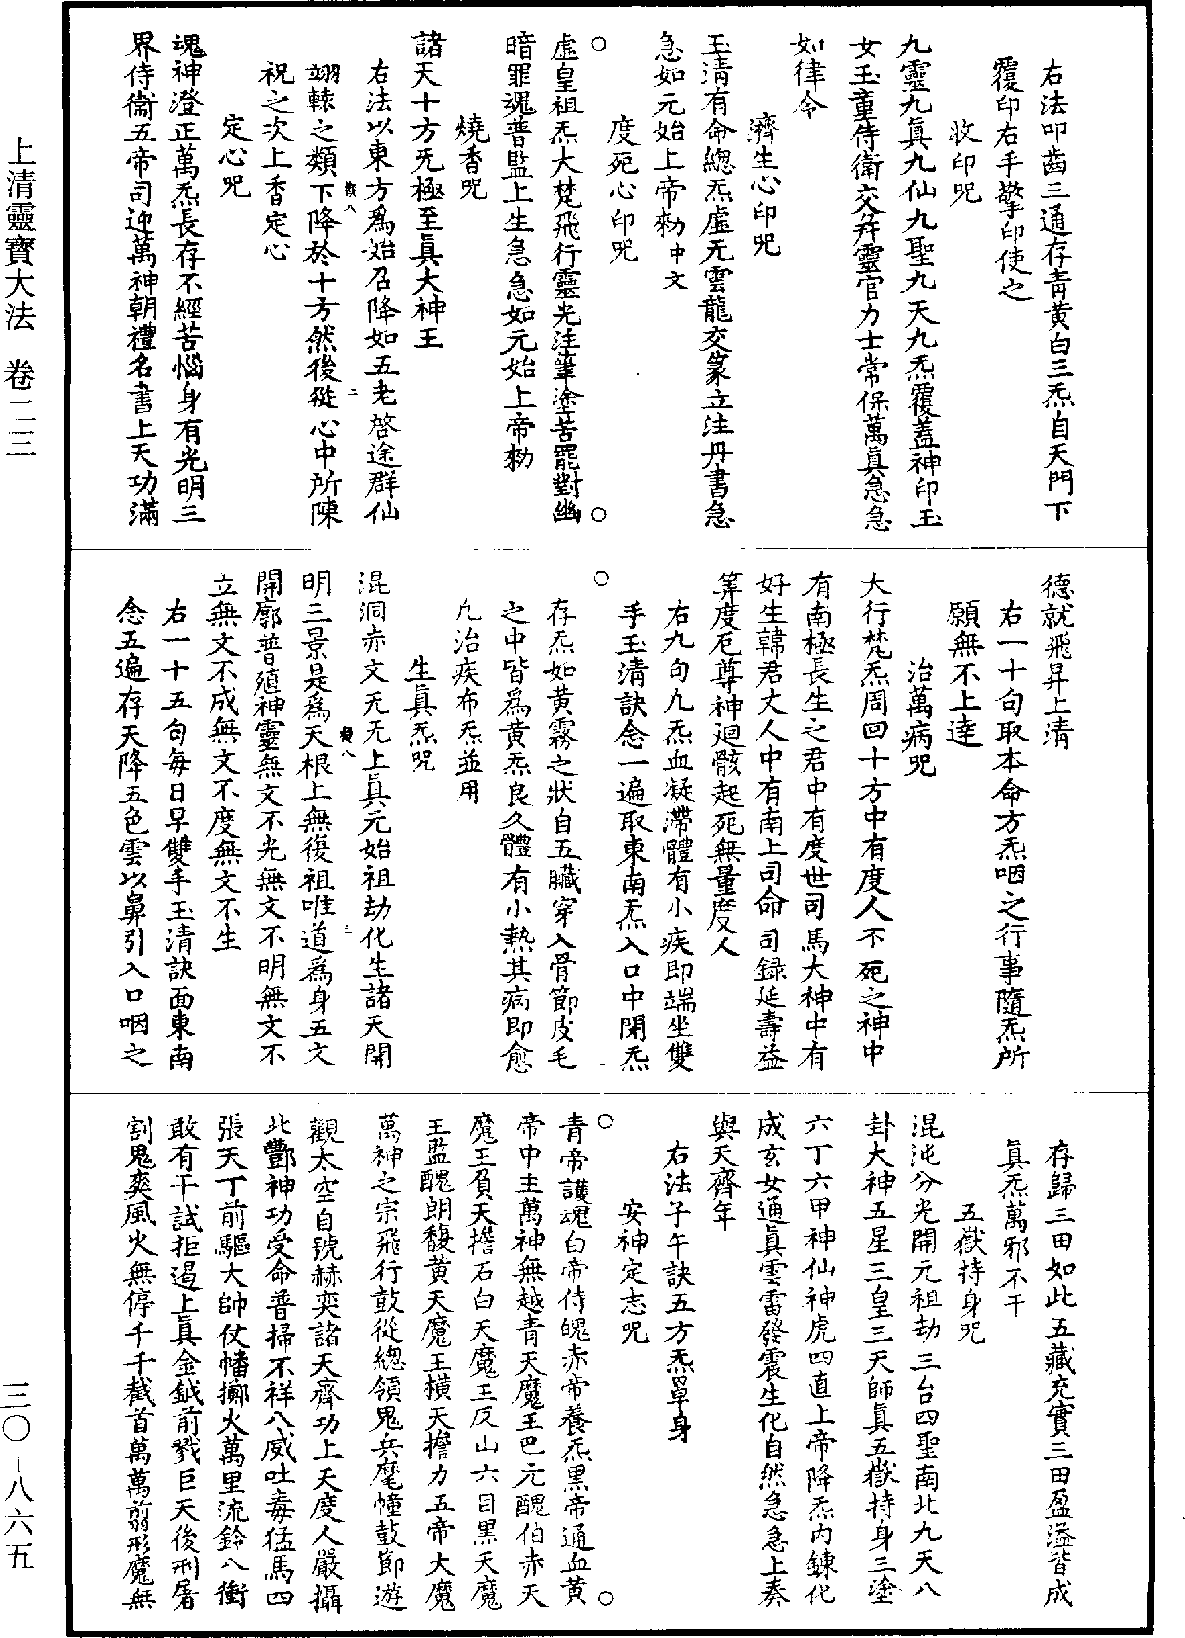 上清靈寶大法　卷二三
三〇－八六五
右法叩齒三通存青黃白三炁自天門下
覆印右手擎印使之
收印呪
九靈九眞九仙九聖九天九炁覆蓋神印玉
女玉童侍衛交幷靈官力士常保萬眞急急
如律令
濟生心印呪
玉清有命總炁虛无雲龍交篆立注丹書急
急如元始上帝勑中文
度死心印呪
虛皇祖炁大梵飛行靈光注筆塗苦罷對幽
暗罪魂普監上生急急如元始上帝勑
燒香呪
諸天十方无極至眞大神王
右法以東方爲始召降如五老啓途群仙
翊轅之類下降於十方然後從心中所陳
祝之次上香定心
定心呪
魂神澄正萬炁長存不經苦惱身有光明三
界侍衞五帝司迎萬神朝禮名書上天功滿
德就飛昇上清
右一十句取本命方炁咽之行事隨炁所
願無不上達
治萬病呪
大行梵炁周回十方中有度人不死之神中
有南極長生之君中有度世司馬大神中有
好生韓君丈人中有南上司命司録延壽益
筭度厄尊神廻骸起死無量度人
右九句九炁血凝滯體有小疾即端坐雙
手玉清訣念一遍取東南炁入口中閉炁
存炁如黃霧之狀自五臟穿入骨節皮毛
之中皆爲黃炁良久體有小熱其病即愈
凢治疾布炁並用
生眞炁呪
混洞赤文无无上眞元始祖劫化生諸天開
明三景是爲天根上無復祖唯道爲身五文
開廓普殖神靈無文不光無文不明無文不
立無文不成無文不度無文不生
右一十五句每日早雙手玉清訣面東南
念五遍存天降五色雲以鼻引入口咽之
存歸三田如此五藏充實三田盈溢皆成
眞炁萬邪不干
五嶽持身呪
混沌分光開元祖劫三台四聖南北九天八
卦大神五星三皇三天師眞五嶽持身三塗
六丁六甲神仙神虎四直上帝降炁内鍊化
成玄女通眞雲雷發震生化自然急急上奏
與天齊年
右法子午訣五方炁罩身
安神定志呪
青帝護魂白帝侍魄赤帝養炁黑帝通血黃
帝中主萬神無越青天魔王巴元醜伯赤天
魔王負天擔石白天魔王反山六目黑天魔
王監醜朗馥黃天魔王橫天擔力五帝大魔
萬神之宗飛行鼓從總領鬼兵麾幢鼓節遊
觀太空自號赫奕諸天齊功上天度人嚴攝
北酆神功受命普掃不祥八威吐毒猛馬四
張天丁前驅大帥仗幡擲火萬里流鈴八衝
敢有干試拒遏上眞金鉞前戮巨天後刑屠
割鬼爽風火無停千千截首萬萬剪形魔無